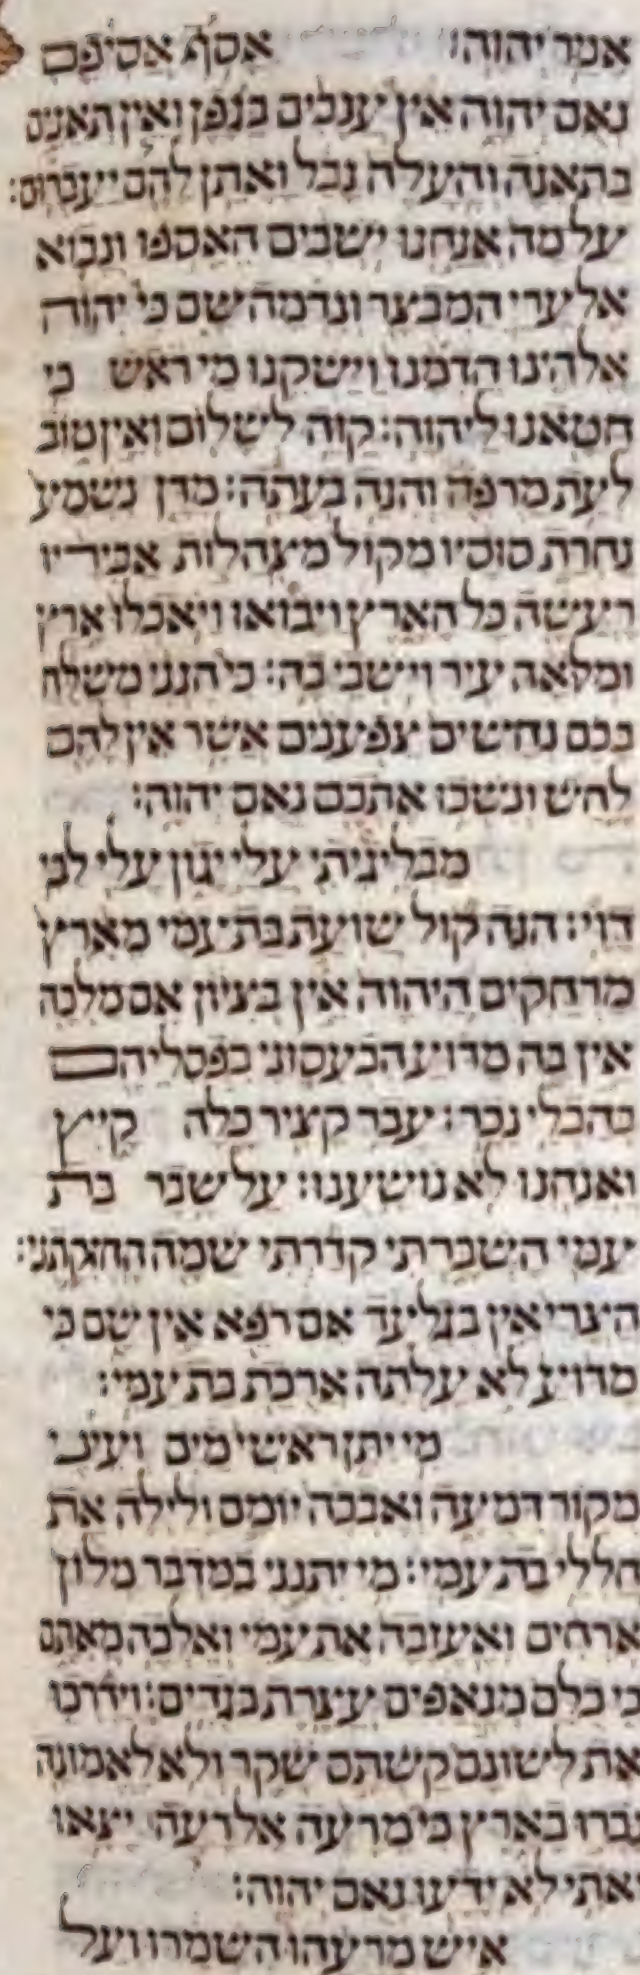 אמר יהוה׃ אסף אסיפם
נאם יהוה אין ענבים בגפן ואין תאנים
בתאנה והעלה נבל ואתן להם יעברום׃
על מה אנחנו ישבים האספו ונבוא
אל ערי המבצר ונדמה שם כי יהוה
אלהינו הדמנו וישקנו מי ראש כי
חטאנו ליהוה׃ קוה לשלום ואין טוב
לעת מרפה והנה בעתה׃ מדן נשמע
נחרת סוסיו מקול מצהלות אביריו
רעשה כל הארץ ויבואו ויאכלו ארץ
ומלאה עיר וישבי בה׃ כי הנני משלח
בכם נחשים צפענים אשר אין להם
לחש ונשכו אתכם נאם יהוה׃
מבליגיתי עלי יגון עלי לבי
דוי׃ הנה קול שועת בת עמי מארץ
מרחקים היהוה אין בציון אם מלכה
אין בה מדוע הכעסוני בפסליהם
בהבלי נכר׃ עבר קציר כלה קיץ
ואנחנו לא נושענו׃ על שבר בת
עמי השברתי קדרתי שמה החזקתני׃
הצרי אין בגלעד אם רפא אין שם כי
מדוע לא עלתה ארכת בת עמי׃
מי יתן ראשי מים ועיני
מקור דמעה ואבכה יומם ולילה את
חללי בת עמי׃ מי יתנני במדבר מלון
ארחים ואעזבה את עמי ואלכה מאתם
כי כלם מנאפים עצרת בגדים׃ וידרכו
את לשונם קשתם שקר ולא לאמונה
גברו בארץ כי מרעה אל רעה יצאו
ואתי לא ידעו נאם יהוה׃
איש מרעהו השמרו ועל